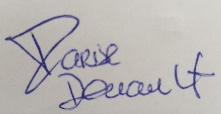 Parise
Denault